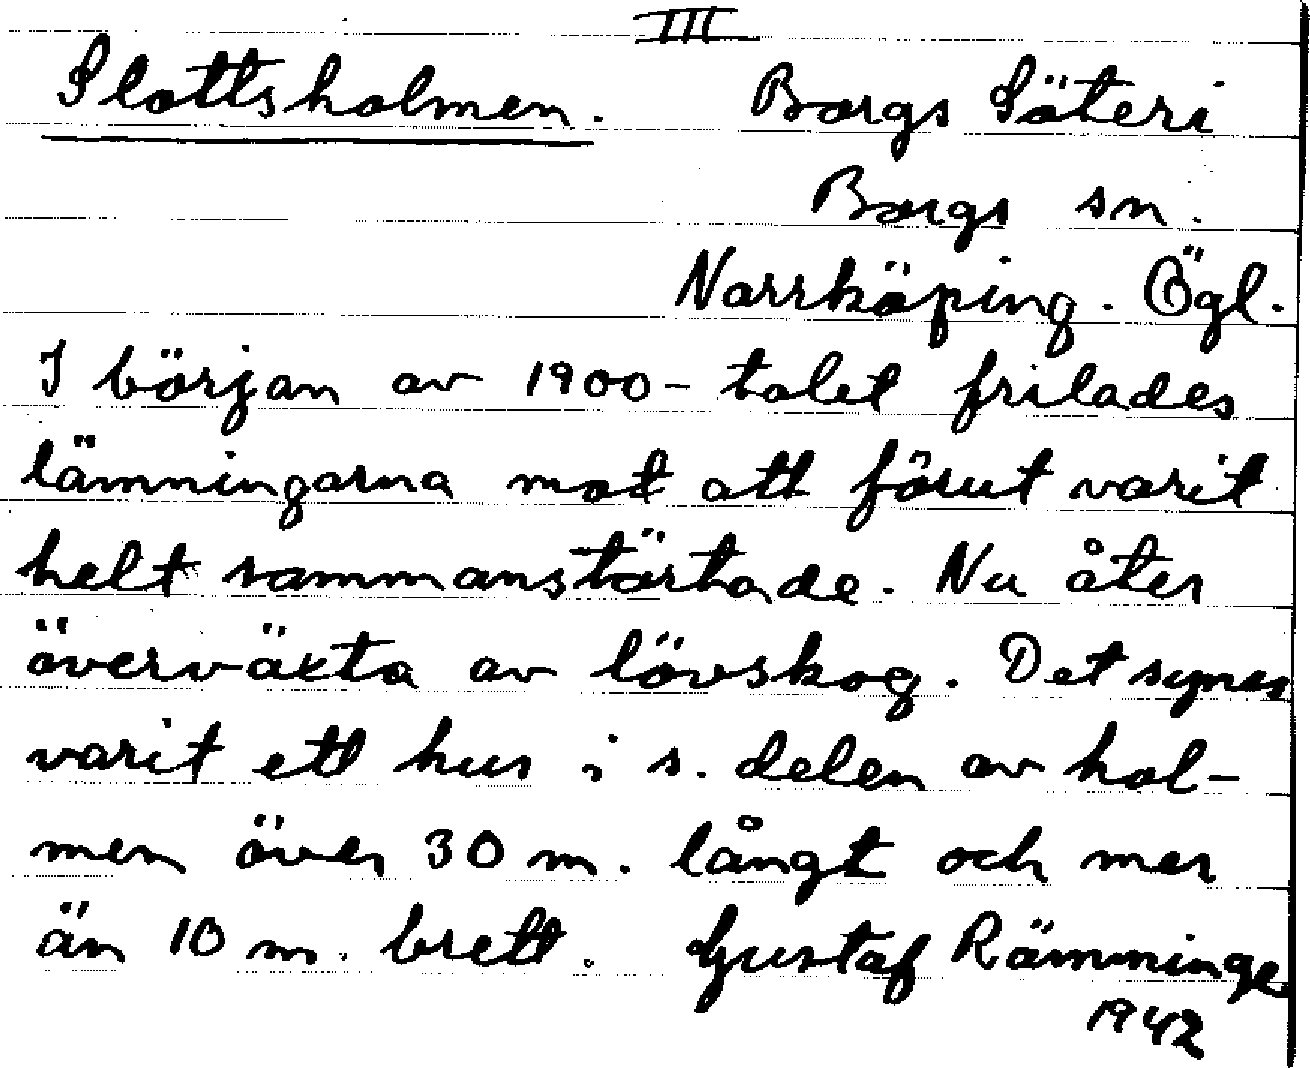 III
Slottsholmen. Borgs Säteri
Borgs sn.
Norrköping. Ögl.
I början av 1900-talet frilades
lämningarna mot att förut varit
helt sammanstörtade. Nu åter
överväxta av lövskog. Det synes
varit ett hus i s. delen av hol-
men över 30 m. långt och mer
än 10 m. brett. Gustaf Rämminge
1942